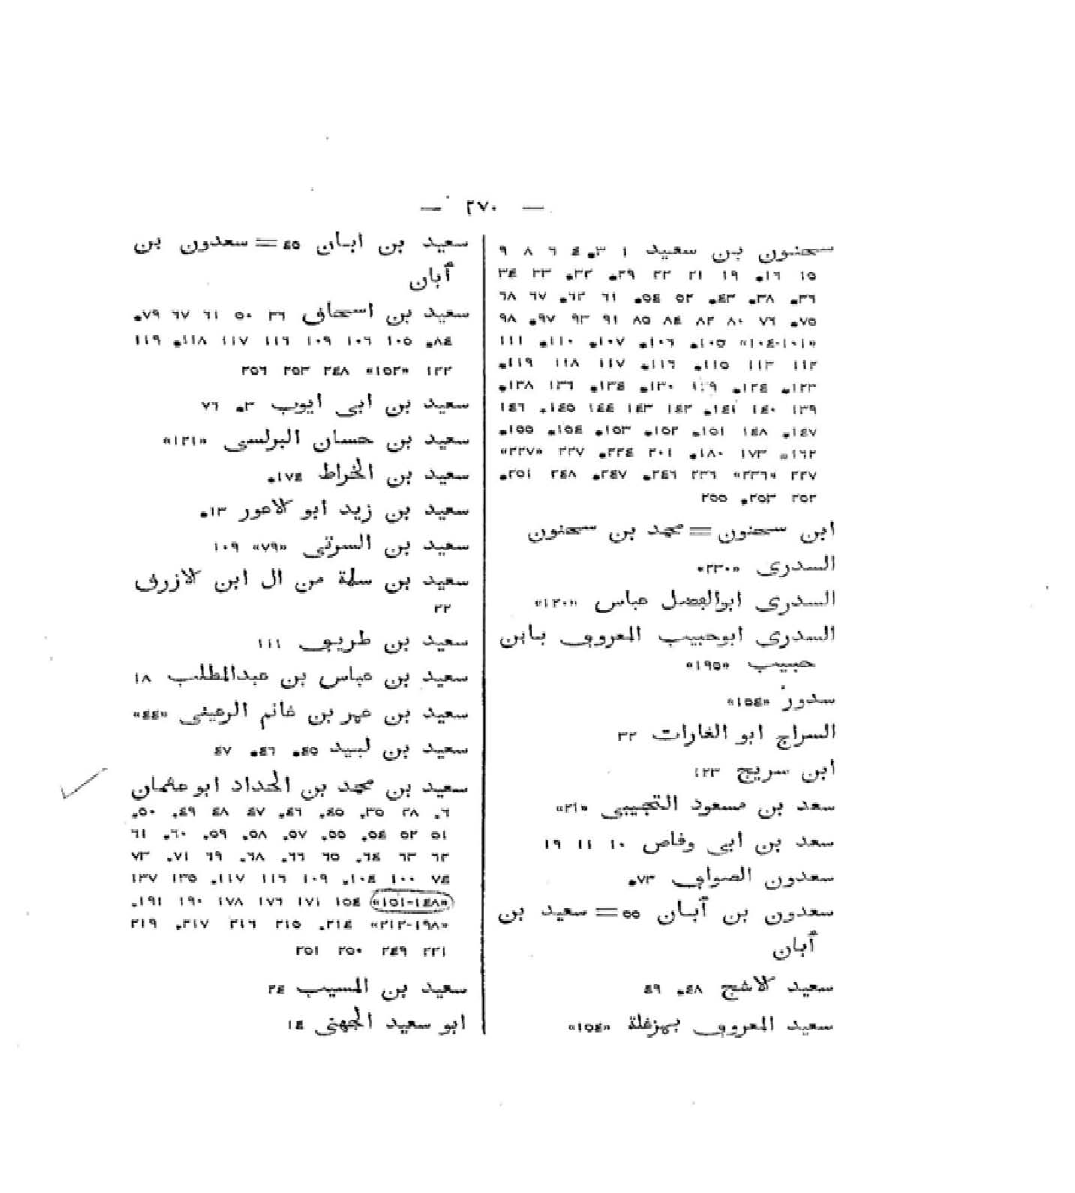 — ٢٧٠ —
سحنون بن سعيد ١ ٣. ٤ ٦ ٨ ٩
١٥ ١٦. ١٩ ٢١ ٢٢ ٢٩. ٣٢. ٣٣ ٣٤
٣٦. ٣٨. ٤٣. ٥٢ ٥٤. ٦١ ٦٢. ٦٧ ٦٨
٧٥. ٧٦ ٨٠ ٨٢ ٨٤ ٨٥ ٩١ ٩٣ ٩٧. ٩٨
«١٠١-١٠٤» ١٠٥. ١٠٦. ١٠٧. ١١٠. ١١١
١١٢ ١١٣ ١١٥. ١١٦. ١١٧ ١١٨ ١١٩.
١٢٣. ١٢٤. ١٢٩ ١٣٠. ١٣٤. ١٣٦ ١٣٨.
١٣٩ ١٤٠ ١٤١. ١٤٢ ١٤٣ ١٤٤ ١٤٥. ١٤٦
١٤٧. ١٤٨ ١٥١. ١٥٢. ١٥٣. ١٥٤. ١٥٥.
١٦٢. ١٧٣ ١٨٠. ٢٠١ ٢٢٤. ٢٢٧ «٢٢٧»
٢٢٧ «٢٣٦» ٢٣٦ ٢٤٦. ٢٤٧. ٢٤٨ ٢٥١.
٢٥٢ ٢٥٣. ٢٥٥
ابن سحنون = محمد بن سحنون
السدرى «٢٣٠»
السدرى ابوالفضل عباس «١٢٠»
السدرى ابوحبيب المعروف بابن
حبيب «١٩٥»
سدور «١٥٤»
السراج ابو الغارات ٣٢
ابن سريج ١٢٣
سعد بن مسعود التجيبى «٢١»
سعد بن ابى وقاص ١٠ ١١ ١٩
سعدون الصواف ٧٣.
سعدون بن أبان ٥٥ = سعيد بن
أبان
سعيد الاشج ٤٨. ٤٩
سعيد المعروف بهزغلة «١٥٤»
سعيد بن ابان ٤٥ = سعدون بن
أبان
سعيد بن اسحاق ٣٦ ٥٠ ٦١ ٦٧ ٧٩.
٨٤. ١٠٥ ١٠٦ ١٠٩ ١١٦ ١١٧ ١١٨. ١١٩
١٢٢ «١٥٢» ٢٤٨ ٢٥٣ ٢٥٦
سعيد بن ابى ايوب ٣. ٧٦
سعيد بن حسان البرلسى «١٢١»
سعيد بن الخراط ١٧٤.
سعيد بن زيد ابو الاعور ١٣.
سعيد بن السرتى «٧٩» ١٠٩
سعيد بن سلمة من ال ابن الازرق
٢٢
سعيد بن طريف ١١١
سعيد بن عباس بن عبدالمطلب ١٨
سعيد بن عمر بن غانم الرعينى «٤٤»
سعيد بن لبيد ٤٥. ٤٦. ٤٧
سعيد بن محمد بن الحداد ابو عثمان
٦. ٢٨ ٣٥. ٤٥. ٤٦. ٤٧ ٤٨ ٤٩. ٥٠.
٥١ ٥٢ ٥٤. ٥٥. ٥٧. ٥٨. ٥٩. ٦٠. ٦١
٦٢ ٦٣ ٦٤. ٦٥ ٦٦. ٦٨. ٦٩ ٧١. ٧٣
٧٤ ١٠٠ ١٠٤. ١٠٩ ١١٦ ١١٧. ١٣٥ ١٣٧
«١٤٨-١٥١» ١٥٤ ١٧١ ١٧٦ ١٧٨ ١٩٠ ١٩١.
«١٩٨-٢١٢» ٢١٤. ٢١٥ ٢١٦ ٢١٧. ٢١٩
٢٢١ ٢٤٩ ٢٥٠ ٢٥١
سعيد بن المسيب ٢٤
ابو سعيد الجهنى ١٤